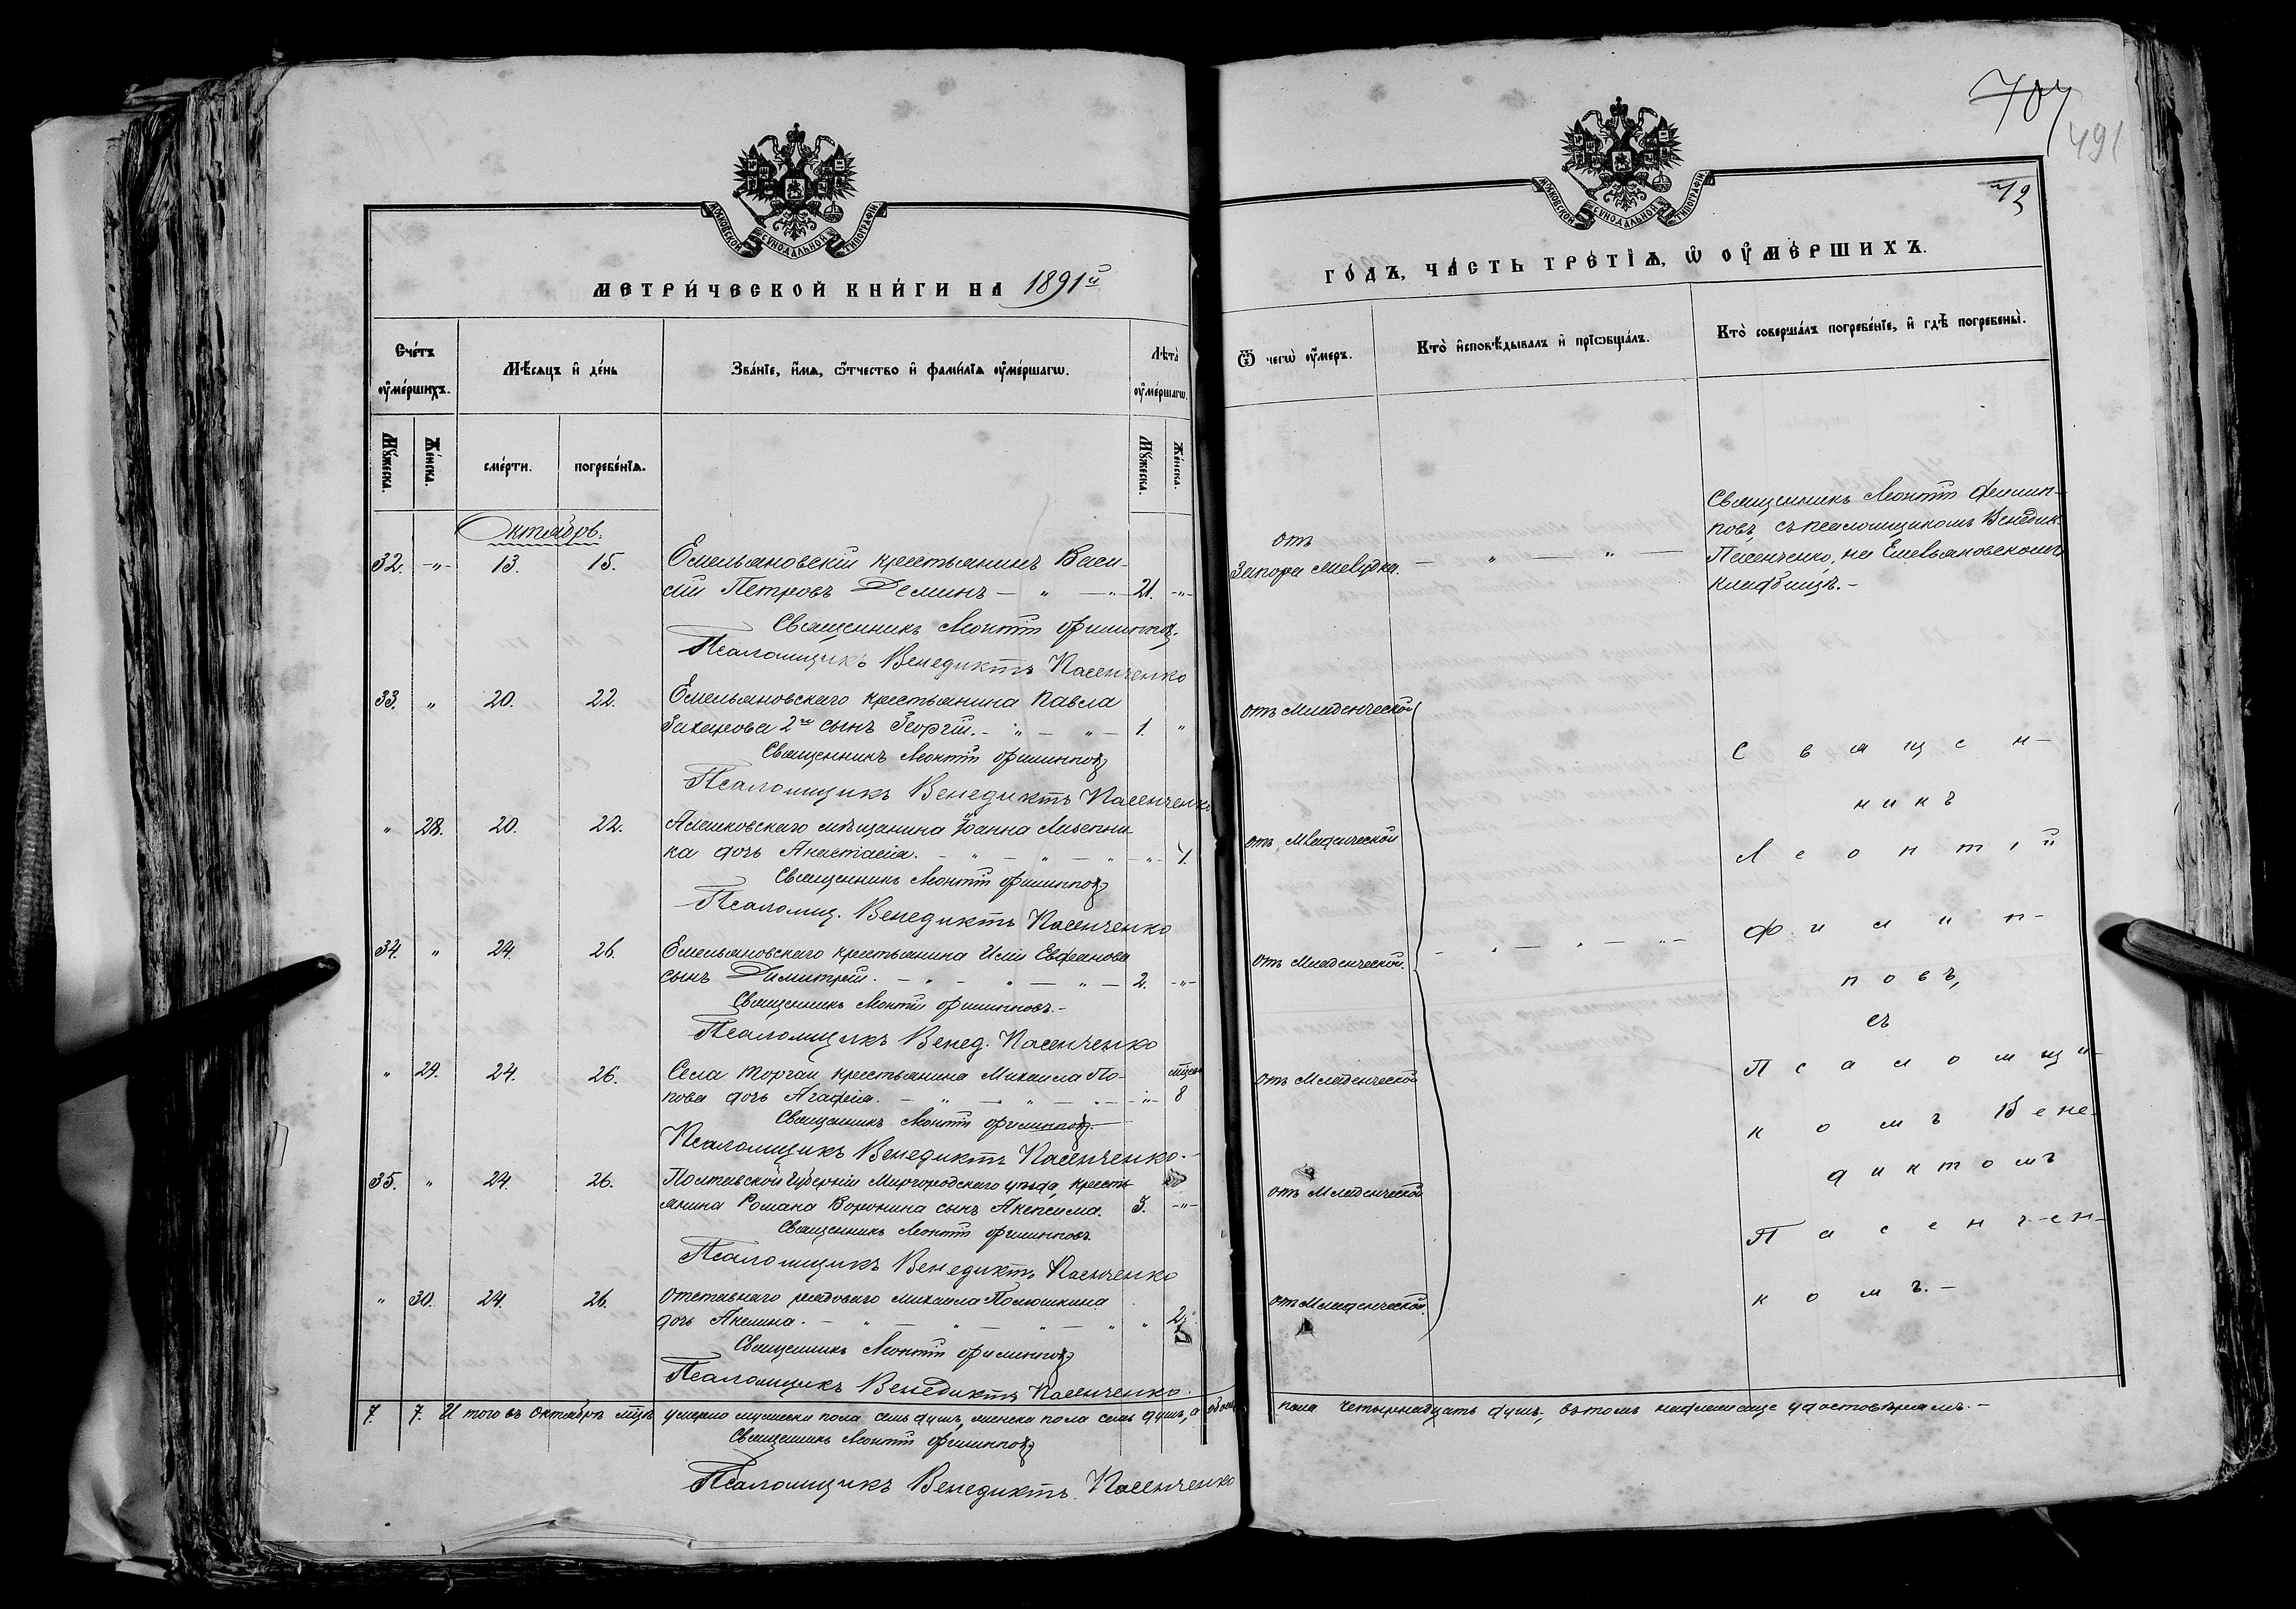 МОСКОВСКОЙ СѴНОДАЛЬНОЙ ТИПОГРАФІИ
МЕТРИ́ЧЕСКОЙ КНИ́ГИ НА 1891й
Сче́тъ ᲂу҆ме́ршихъ.
Мѣ́сяцъ и҆ де́нь
Зва́нїе, и҆́мѧ, ѻ҆́тчество и҆ фами́лїѧ ᲂу҆ме́ршагѡ.
Лѣта̀ ᲂу҆ме́ршагѡ.
Мꙋ́жеска.
Же́нска.
сме́рти.
погребе́нїѧ.
Мꙋ́жеска.
Же́нска.
Октябрь.
32. -"- 13. 15. Емельяновскій крестьянинъ Васи-
лій Петровъ Деминъ — " — "— 21. -"-
Священникъ Леонтій Филипповъ.
Псаломщикъ Венедиктъ Пасенченко
33. " 20. 22. Емельяновскаго крестьянина Павла
Захарова 2й сынъ Георгій. — " — " — 1. "
Священникъ Леонтій Филипповъ
Псаломщикъ Венедиктъ Пасенченко
" 28. 20. 22. Алешковскаго мѣщанина Іоанна
ка дочь Анастасія. — " — " — " -"- 1.
Священникъ Леонтій Филипповъ
Псаломщ. Венедиктъ Пасенченко
34. " 24. 26. Емельяновскаго крестьянина Иліи
сынъ Димитрій. — " — " — " — 2. -"-
Священникъ Леонтій Филипповъ.-
Псаломщикъ Венед. Пасенченко
" 29. 24. 26. Села Торгаи крестьянина Михаила По-
пова дочь Агафія. — " — " — " -"- мцев 8
Священникъ Леонтій Филипповъ.-
Псаломщикъ Венедиктъ Пасенченко.-
35. " 24. 26. Полтавской губерніи Миргородскаго уѣзда, кресть-
янина Романа Воронина сынъ 3. -"-
Священникъ Леонтій Филипповъ.
Псаломщикъ Венедиктъ Пасенченко
" 30. 24. 26. Отставнаго рядоваго Михаила
дочь Акилина. — " — " — " — " " 2.
Священникъ Леонтій Филипповъ
Псаломщикъ Венедиктъ Пасенченко.
7. 7. Итого въ Октябрѣ мцѣ умерло мужеска пола семь душъ, женска пола семь душъ, а обоего
Священникъ Леонтій Филипповъ
Псаломщикъ Венедиктъ Пасенченко
707
491
МОСКОВСКОЙ СѴНОДАЛЬНОЙ ТИПОГРАФІИ
ГО́ДЪ, ЧА́СТЬ ТРЕ́ТЇѦ, Ѡ҆ ᲂУ҆МЕ́РШИХЪ.
Ѿ чегѡ̀ ᲂу҆́меръ.
Кто̀ и҆сповѣ́дывалъ и҆ прїѡбща́лъ.
Кто̀ соверша́лъ погребе́нїе, и҆ гдѣ̀ погребены̀.
Священникъ Леонтій Филип-
повъ, съ псаломщикомъ Венедик.
Пасенченко, на Емельяновскомъ
кладбищѣ.-
отъ
Запора желудка. — " — " —
отъ Младенческой
отъ Младенческой
отъ Младенческой. — " — " — " —
отъ Младенческой
отъ Младенческой
отъ Младенческой.
Священ-
никъ
Леонтій
Филип-
повъ,
съ
Псаломщи-
комъ Вене-
диктомъ
Пасенчен-
комъ.-
пола четырнадцать душъ; въ томъ надлежаще удостовѣряемъ.-